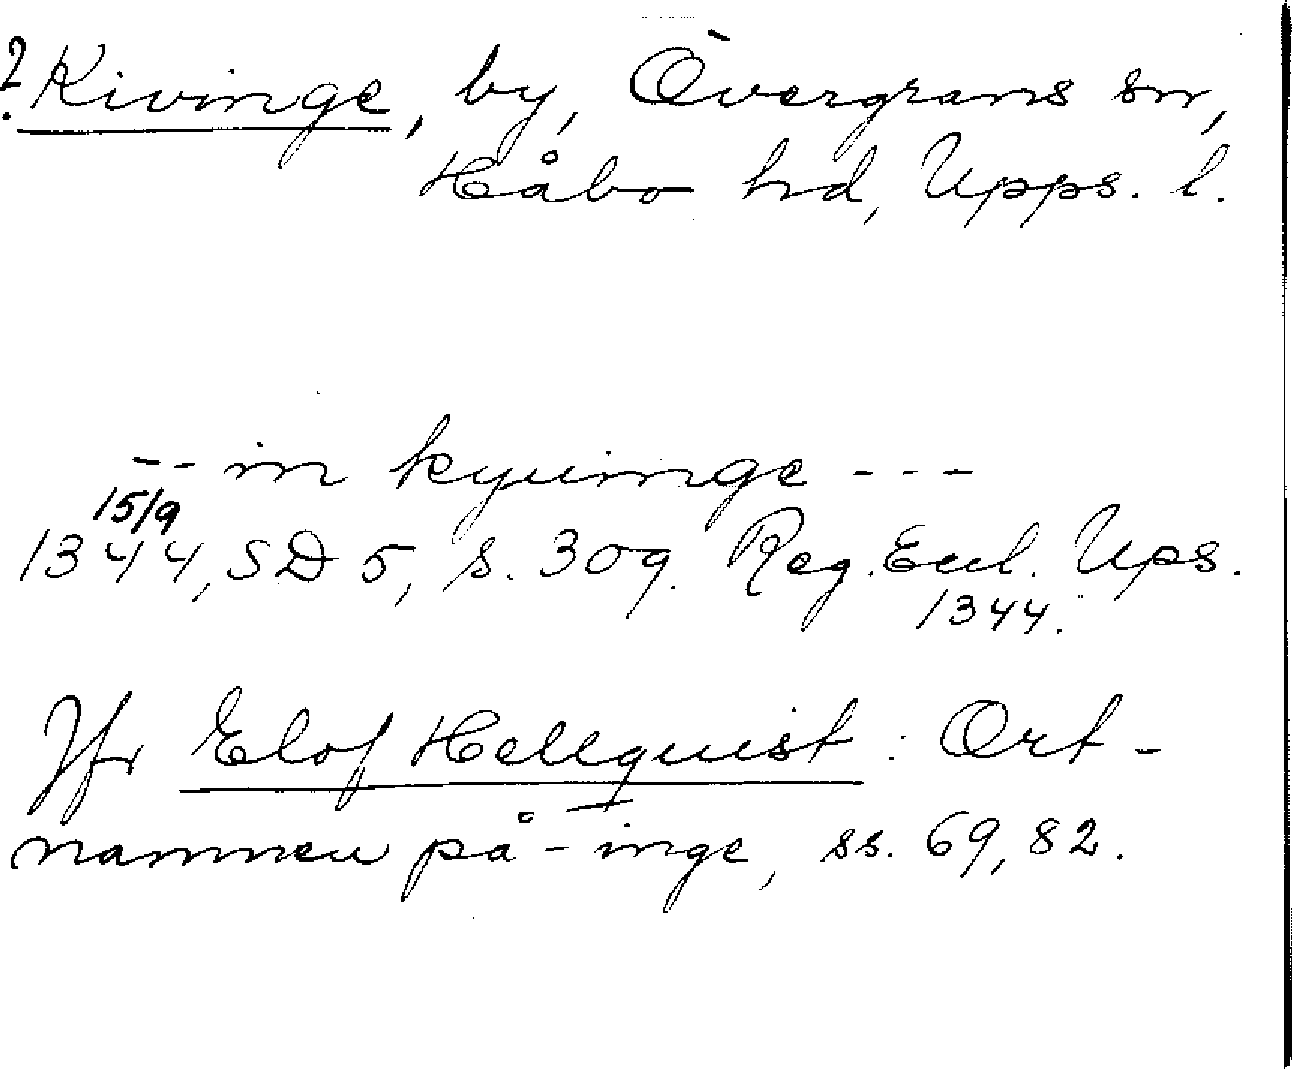 ? Kivinge, by, Övergrans sn,
Håbo hd, Upps. l.
-- in kyuinge ---
15/9
1344, SD 5, s. 309. Reg. Eccl. Ups.
1344.
Jfr Elof Hellquist: Ort-
namnen på -inge, ss. 69, 82.